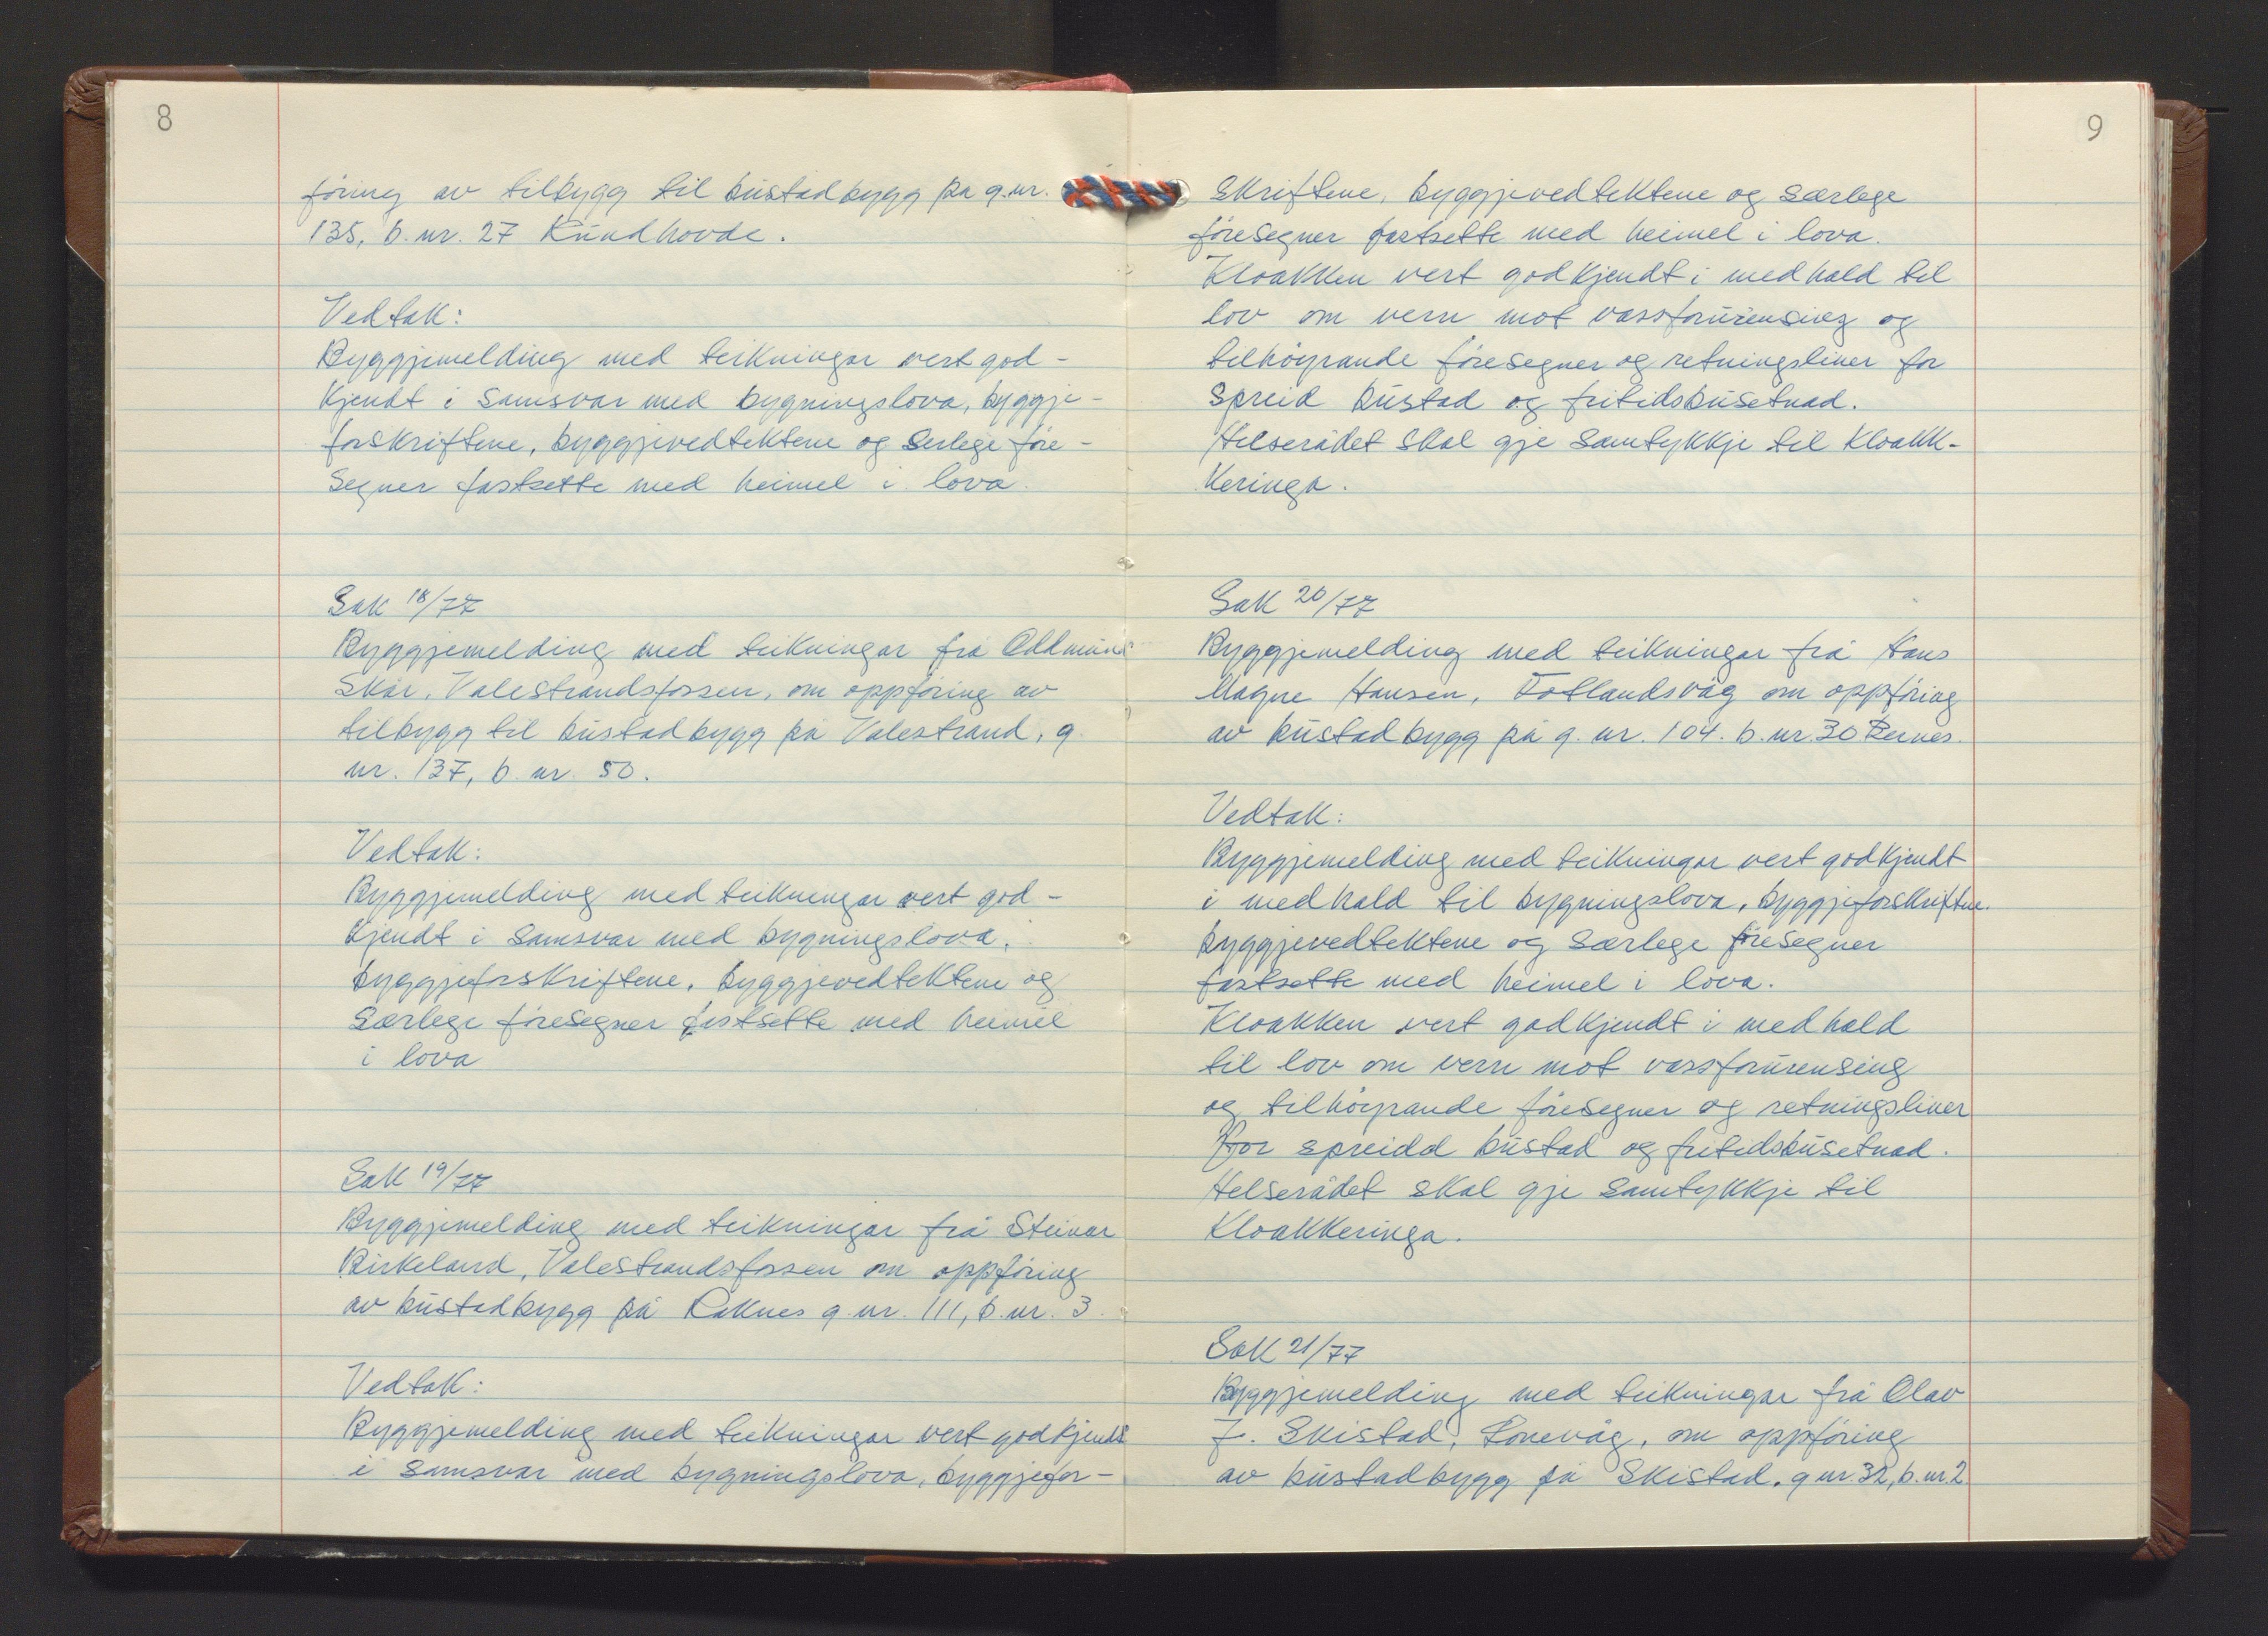 8
föring av tilbygg til bustadbygg på g.nr.
135, b.nr. 27 Rundhovde.
Vedtak:
Byggjemelding med teikningar vert god-
kjendt i samsvar med bygningslova, byggje-
forskriftene, byggjevedtektene og serlege före-
segner fastsette med heimel i lova.
Sak 18/77
Byggjemelding med teikningar frå Oddmund
Skår, Valestrandsfossen, om oppföring av
tilbygg til bustadbygg på Valestrand, g.
nr. 137, b.nr. 50.
Vedtak:
Byggjemelding med teikningar vert god-
kjendt i samsvar med bygningslova,
byggjeforskriftene, byggjevedtektene og
særlege föresegner fastsette med heimel
i lova
Sak 19/77
Byggjemelding med teikningar frå Steinar
Birkeland, Valestrandsfossen om oppföring
av bustadbygg på Raknes g.nr. 111, b.nr. 3.
Vedtak:
Byggjemelding med teikningar vert godkjendt
i samsvar med bygningslova, byggjefor-
9
skriftene, byggjevedtektene og særlege
föresegner fastsette med heimel i lova.
Kloakken vert godkjendt i medhald til
lov om vern mot vassforureining og
tilhöyrande föresegner og retningsliner for
spreid bustad og fritidsbusetnad.
Helserådet skal gje samtykkje til kloakk-
keringa.
Sak 20/77
Byggjemelding med teikningar frå Hans
Magne Hansen, Fotlandsvåg om oppföring
av bustadbygg på g.nr. 104. b.nr. 30
Vedtak:
Byggjemelding med teikningar vert godkjendt
i medhald til bygningslova, byggjeforskriftene.
byggjevedtektene og særlege föresegner
fastsette med heimel i lova.
Kloakken vert godkjendt i medhald
til lov om vern mot vassforurensing
og tilhöyrande föresegner og retningsliner
for spreidd bustad og fritidsbusetnad.
Helserådet skal gje samtykkje til
kloakkeringa.
Sak 21/77
Byggjemelding med teikningar frå Olav
J. Skistad, Lonevåg, om oppföring
av bustadbygg på Skistad, g.nr. 32, b.nr. 2